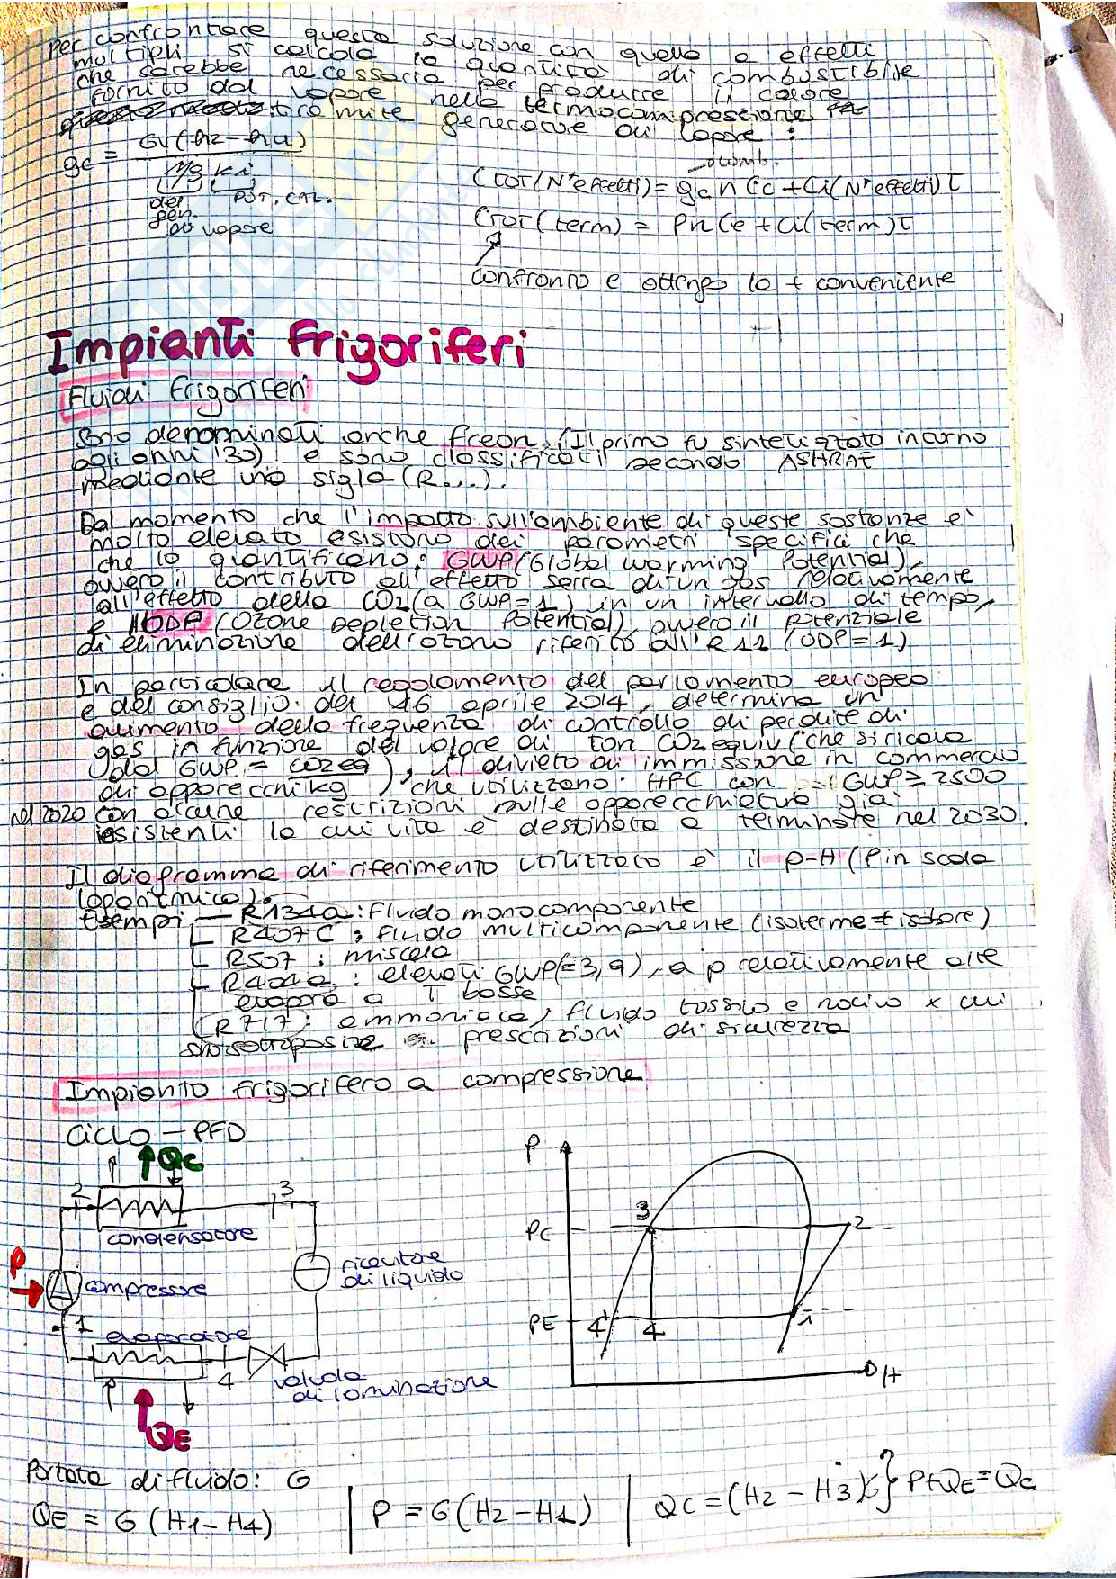 Per confrontare questa soluzione con quella a effetti
multipli si calcola la quantità di combustibile
che sarebbe necessaria per produrre il calore
fornito dal vapore nella termocompressione
tramite generatore di vapore:
gc = Gv(hv-ha) / ηg ki
del gen. di vapore
POT. CAL.
comb.
CTOT(N°effetti) = gc n Cc + Ci(N°effetti) τ
CTOT(term) = Pn Ce + Ci(term) τ
confronto e ottengo la + conveniente
Impianti frigoriferi
Fluidi frigoriferi
Sono denominati anche freon (Il primo fu sintetizzato incurno
agli anni '30) e sono classificati secondo ASHRAE
mediante una sigla (R...).
Dal momento che l'impatto sull'ambiente di queste sostanze è
molto elevato esistono dei parametri specifici che
che lo quantificano: GWP (Global warming Potential),
ovvero il contributo all'effetto serra di un gas relativamente
all'effetto della CO2 (a GWP=1) in un intervallo di tempo,
e ODP (Ozone Depletion Potential), ovvero il potenziale
di eliminazione dell'ozono riferito all'R12 (ODP=1)
In particolare il regolamento del parlamento europeo
e del consiglio del 16 aprile 2014, determina un
aumento della frequenza di controllo di perdite di
gas in funzione del valore di ton CO2 equiv (che si ricava
dal GWP = CO2eq / kg), il divieto di immissione in commercio
di apparecchi che utilizzano HFC con GWP ≥ 2500
nel 2020 con alcune restrizioni sulle apparecchiature già
esistenti la cui vita è destinata a terminare nel 2030.
Il diagramma di riferimento utilizzato è il p-H (P in scala
logaritmica).
Esempi — R134a: fluido monocomponente
R407C: fluido multicomponente (isoterme ≠ isobare)
R507: miscela
R404a: elevati GWP(=3,9), a p relativamente alte
evapora a T basse
(R717): ammoniaca, fluido tossico e nocivo x cui
prescrizioni di sicurezza
Impianto frigorifero a compressione
Ciclo — PFD
QC
2
3
condensatore
P
compressore
ricevitore
di liquido
1
evaporatore
4
valvola
di laminazione
QE
P
PC
3
2
PE
4'
4
1
H
Portata di fluido: G
QE = G (H1-H4) | P = G(H2-H1) | QC = (H2-H3)G } P+QE=QC